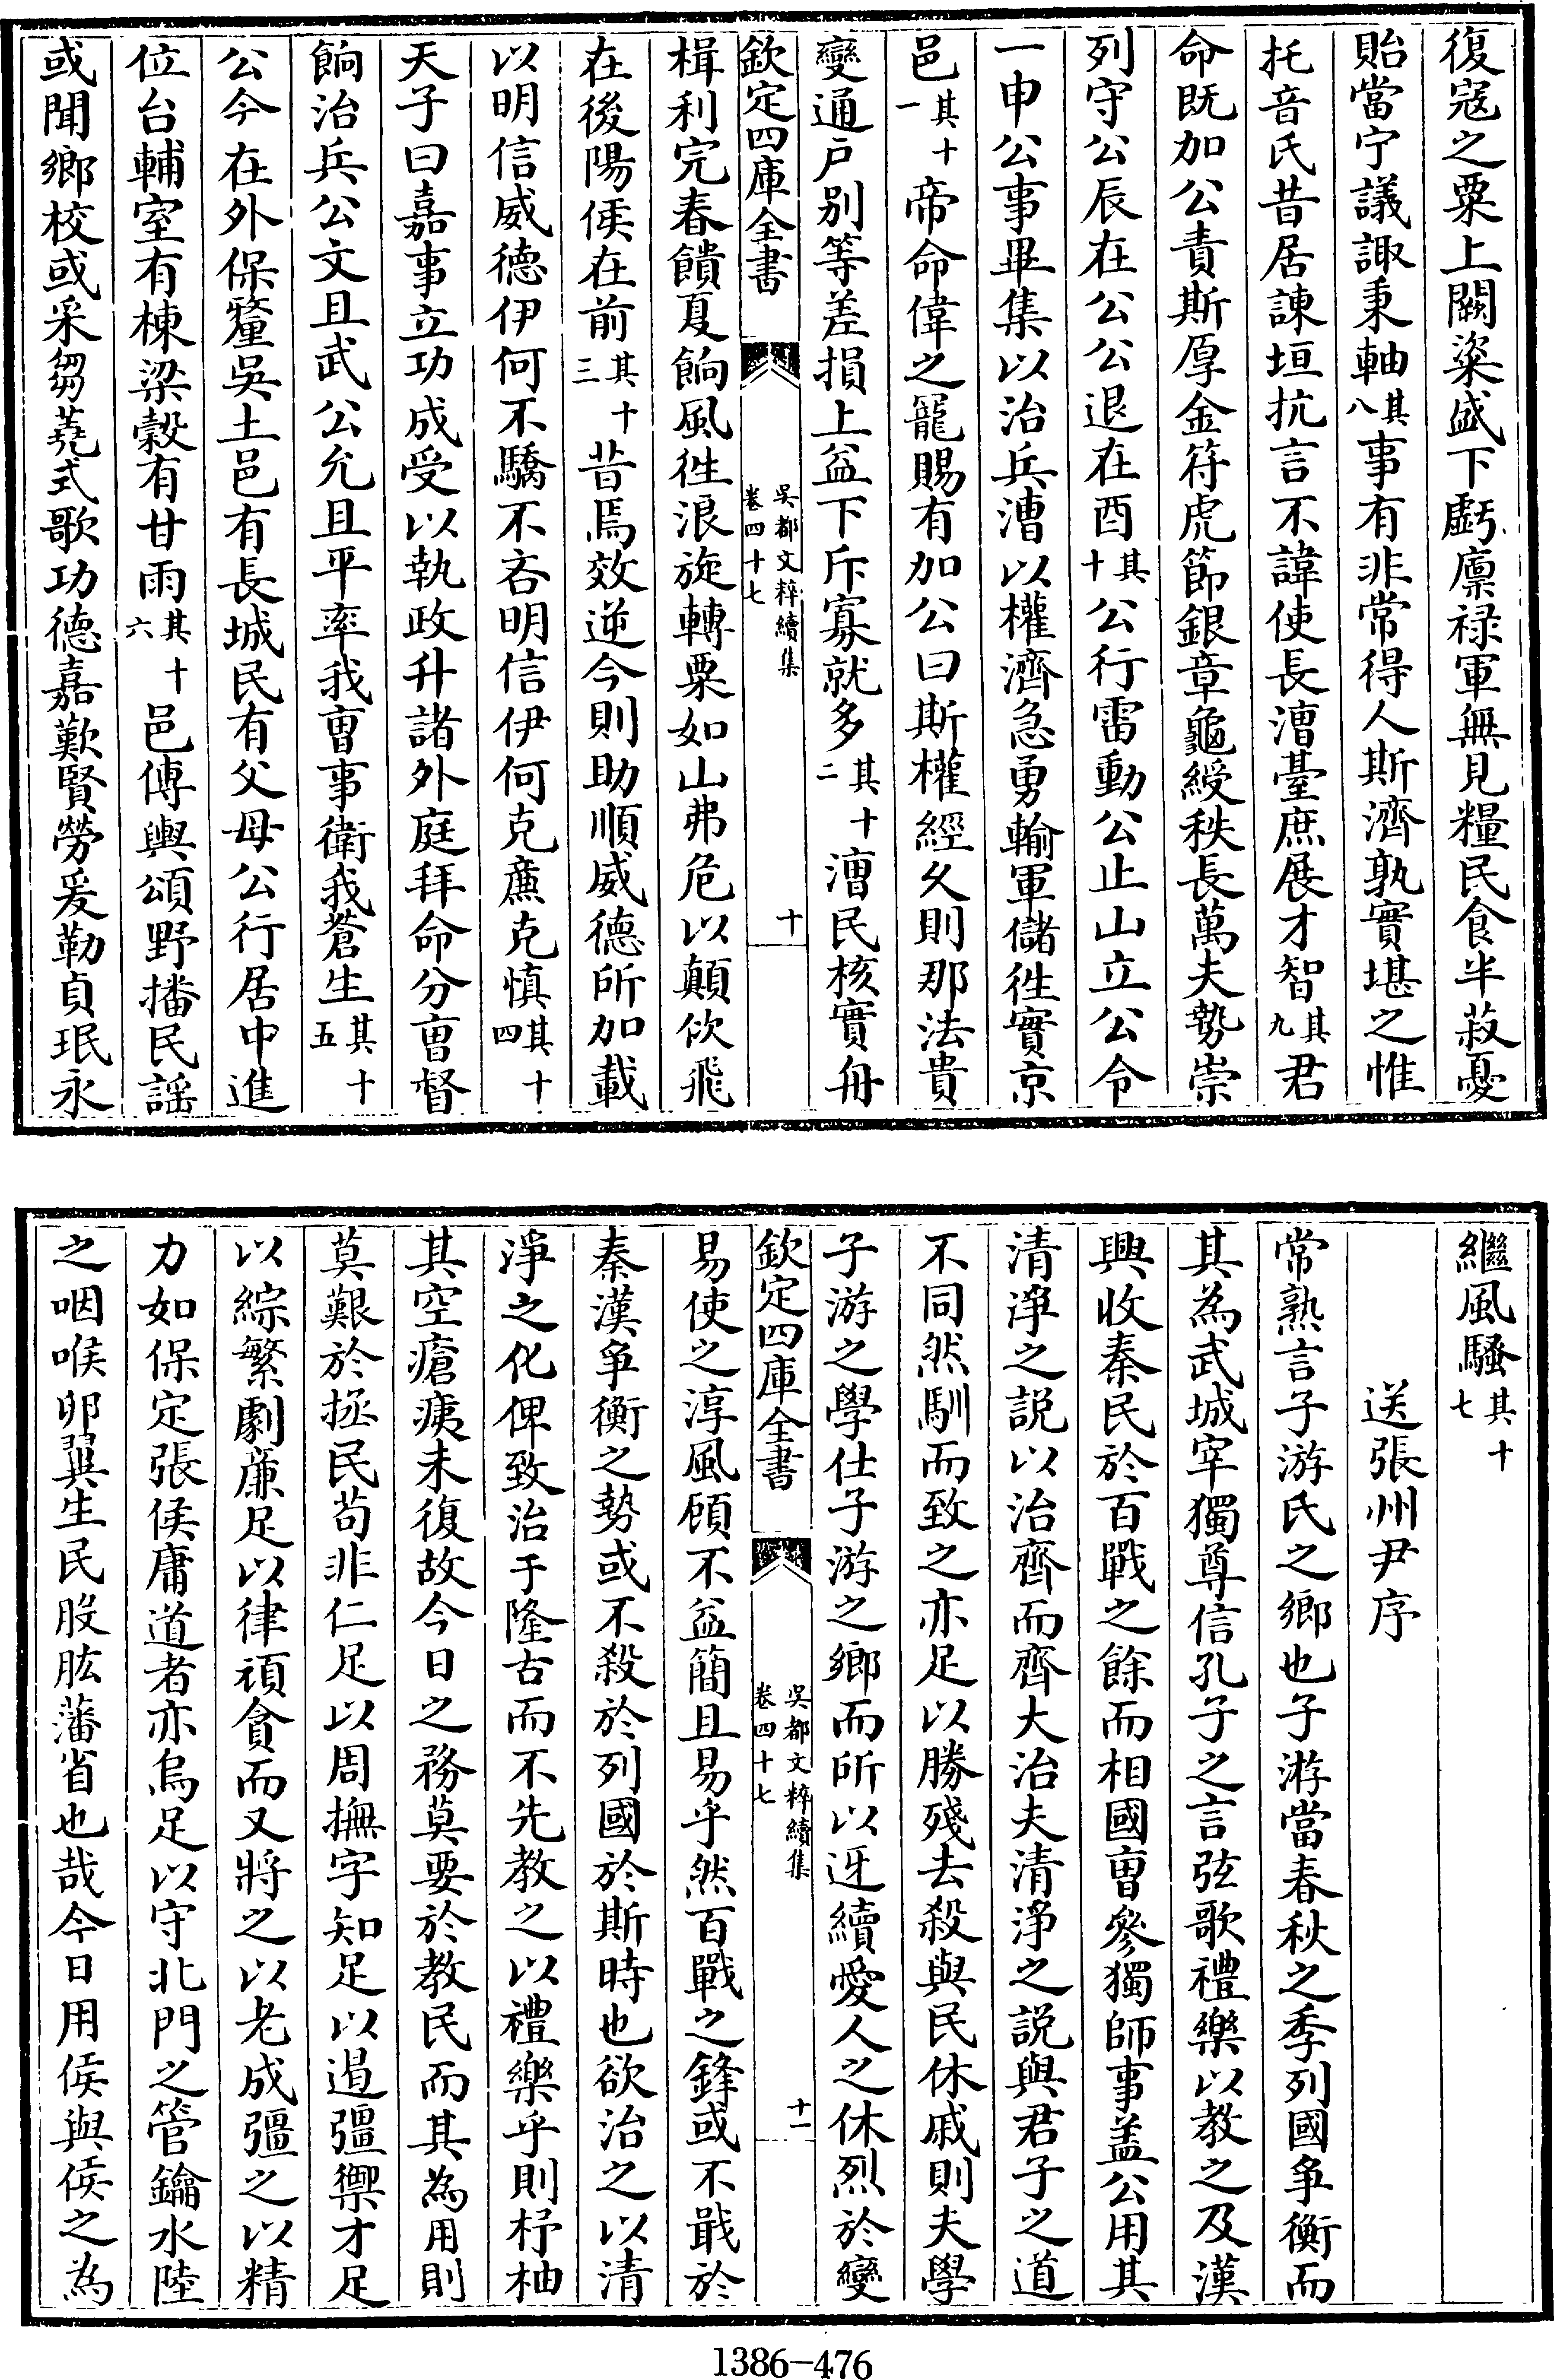 復寇之粟上闕粢盛下虧廪禄軍無見糧民食半菽憂
貽當宁議諏秉軸其八事有非常得人斯濟孰實堪之惟
托音氏昔居諫垣抗言不諱使長漕臺庶展才智其九君
命既加公責斯厚金符虎節銀章龜綬秩長萬夫勢崇
列守公辰在公公退在酉其十公行雷動公止山立公令
一申公事畢集以治兵漕以權濟急勇輸軍儲徃實京
邑其十一帝命偉之寵賜有加公曰斯權經久則那法貴
變通户别等差損上益下斥寡就多其十二漕民核實舟
欽定四庫全書
吳都文粹續集
卷四十七
十
楫利完春饋夏餉風徃浪旋轉粟如山弗危以顛佽飛
在後陽侯在前其十三昔焉效逆今則助順威德所加載
以明信威德伊何不驕不吝明信伊何克廉克慎其十四
天子曰嘉事立功成受以執政升諸外庭拜命分曹督
餉治兵公文且武公允且平率我曹事衛我蒼生其十五
公今在外保釐吳土邑有長城民有父母公行居中進
位台輔室有棟梁榖有甘雨其十六邑傳輿頌野播民謡
或聞鄉校或采芻蕘式歌功德嘉歎賢勞爰勒貞珉永
繼風騷其十七
送張州尹序
常熟言子游氏之鄉也子游當春秋之季列國爭衡而
其為武城宰獨尊信孔子之言弦歌禮樂以教之及漢
興收秦民於百戰之餘而相國曹參獨師事盖公用其
清净之説以治齊而齊大治夫清净之説與君子之道
不同然馴而致之亦足以勝殘去殺與民休戚則夫學
子游之學仕子游之鄉而所以迓續愛人之休烈於變
欽定四庫全書
吳都文粹續集
卷四十七
十一
易使之淳風顧不益簡且易乎然百戰之鋒或不戢於
秦漢爭衡之勢或不殺於列國於斯時也欲治之以清
淨之化俾致治于隆古而不先教之以禮樂乎則杼柚
其空瘡痍未復故今日之務莫要於教民而其為用則
莫艱於拯民苟非仁足以周撫字知足以遏彊禦才足
以綜繁劇亷足以律頑貪而又將之以老成彊之以精
力如保定張侯庸道者亦烏足以守北門之管鑰水陸
之咽喉卵翼生民股肱藩省也哉今日用侯與侯之為
1386-476